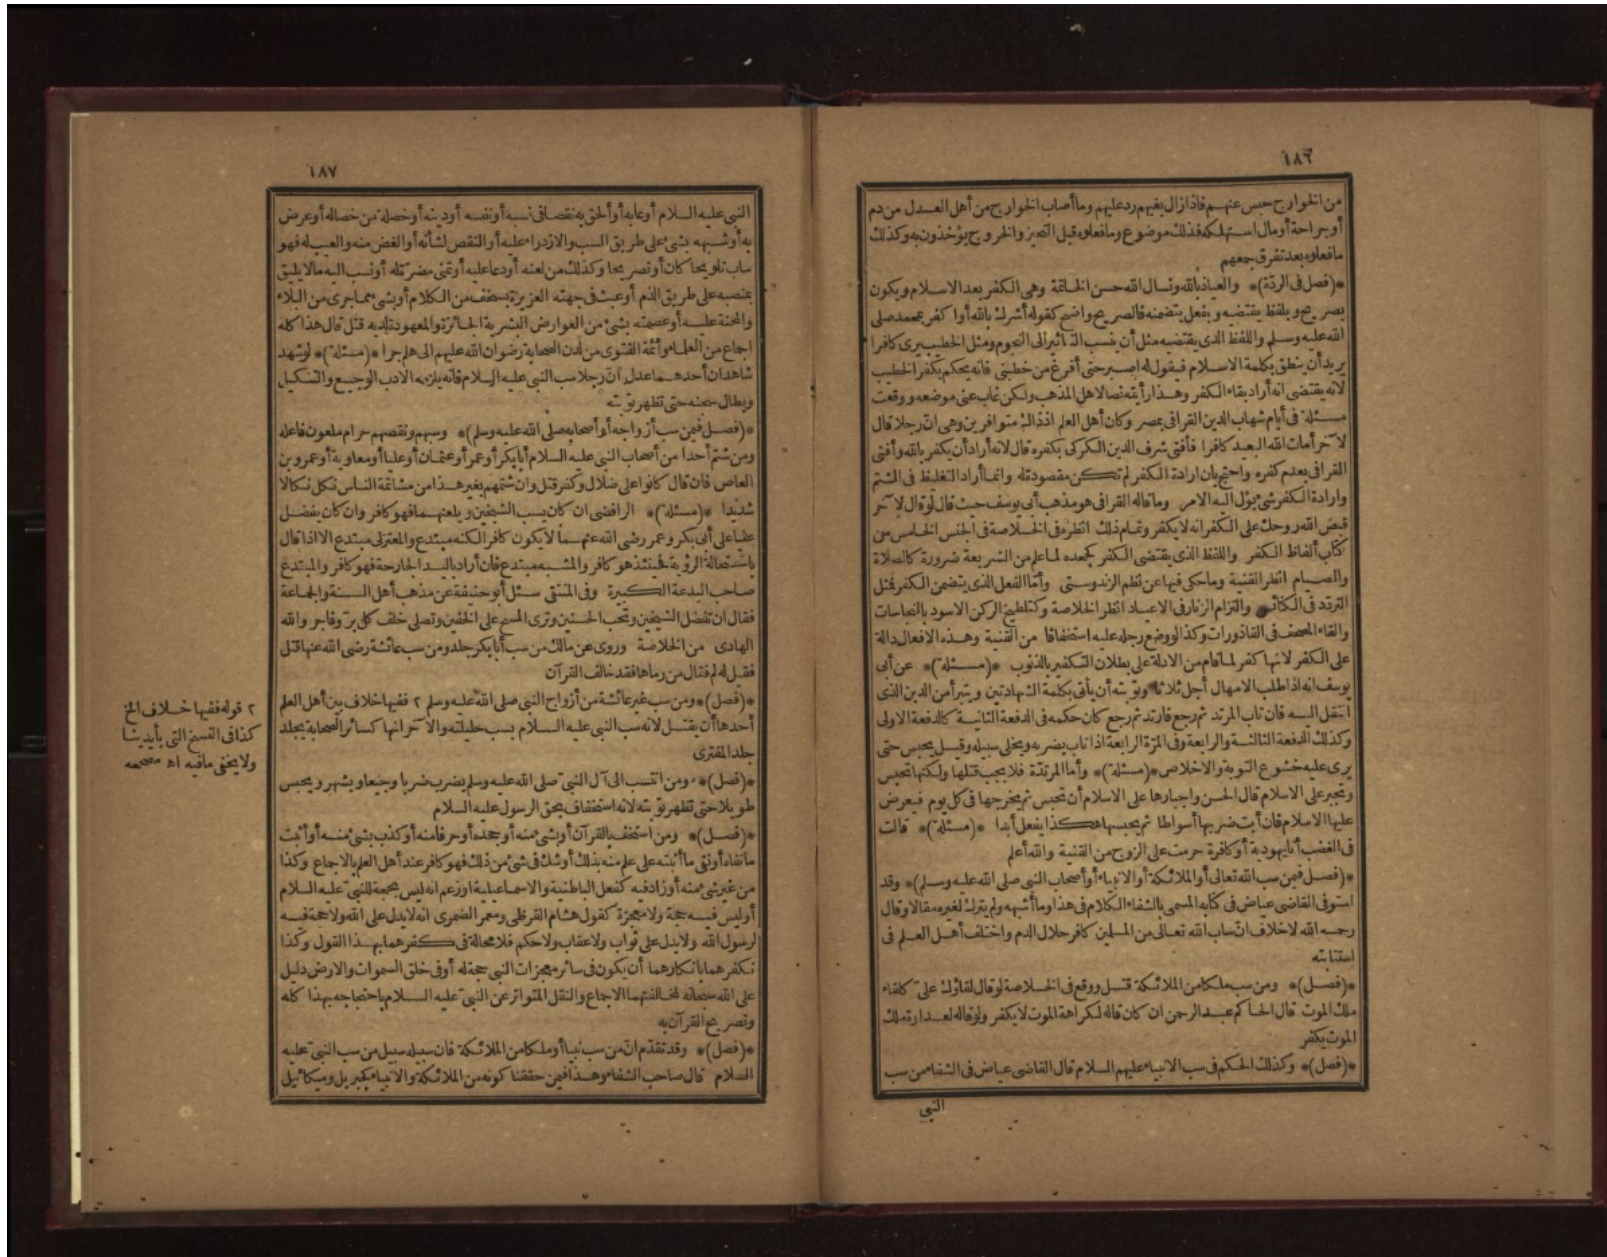 ١٨٦
من الخوارج حبس عنهم فاذا زال بغيهم رد عليهم وما أصاب الخوارج من أهل العدل من دم
أو جراحة أو مال استهلكه فذلك موضوع وما فعلوه قبل التحيز والخروج يؤخذون به وكذلك
ما فعلوه بعد تفرق جمعهم
*(فصل فى الردّة)* والعياذ بالله ونسال الله حسن الخاتمة وهى الكفر بعد الاسلام ويكون
بصريح وبلفظ يقتضيه وبفعل يتضمنه فالصريح واضح كقوله أشرك بالله أو اكفر بمحمد صلى
الله عليه وسلم واللفظ الذى يقتضيه مثل أن ينسب التاثير الى النجوم ومثل الخطيب يرى كافرا
يريد أن ينطق بكلمة الاسلام فيقول له اصبر حتى أفرغ من خطبتى فانه يحكم بكفر الخطيب
لانه يقتضى انه أراد بقاء الكفر وهذا رأيته نصا لاهل المذهب ولكن غاب عنى موضعه ووقعت
مسئلة فى أيام شهاب الدين القرافى بمصر وكان أهل العلم اذ ذاك متوافرين وهى انّ رجلا قال
لآخر أمات الله البعيد كافرا فأفتى شرف الدين الكركى بكفره قال لانه أراد أن يكفر بالله وأفتى
القرافى بعدم كفره واحتج بان ارادة الكفر لم تكن مقصودة له وانما أراد التغليظ فى الشتم
وارادة الكفر شئ يؤل اليه الامر وما قاله القرافى هو مذهب أبى يوسف حيث قال لو قال لآخر
قبض الله روحك على الكفر انه لا يكفر وتمام ذلك انظره فى الخلاصة فى الجنس الخامس من
كتاب ألفاظ الكفر واللفظ الذى يقتضى الكفر كجحده لما علم من الشريعة ضرورة كالصلاة
والصيام انظر القنية وما حكى فيها عن نظم الزندوستى وأمّا الفعل الذى يتضمن الكفر فمثل
التردّد فى الكنائس والتزام الزنار فى الاعياد انظر الخلاصة وكتلطيخ الركن الاسود بالنجاسات
والقاء المصحف فى القاذورات وكذا لو وضع رجله عليه استخفافا من القنية وهذه الافعال دالة
على الكفر لانها كفر لما قام من الادلة على بطلان التكفير بالذنوب *(مسئلة)* عن أبى
يوسف انه اذا طلب الامهال أجل ثلاثا وتوبته أن يأتى بكلمة الشهادتين ويتبرأ من الدين الذى
انتقل اليه فان تاب المرتد ثم رجع فارتد ثم رجع كان حكمه فى الدفعة الثانية كالدفعة الاولى
وكذلك الدفعة الثالثة والرابعة وفى المرّة الرابعة اذا تاب يضربه ويخلى سبيله وقيل يحبس حتى
يرى عليه خشوع التوبة والاخلاص *(مسئلة)* وأما المرتدّة فلا يجب قتلها ولكنها تحبس
وتجبر على الاسلام قال الحسن واجبارها على الاسلام أن تحبس ثم يخرجها فى كل يوم فيعرض
عليها الاسلام فان أبت ضربها أسواطا ثم يحبسها هكذا يفعل أبدا *(مسئلة)* قالت
فى الغضب أنا يهودية أو كافرة حرمت على الزوج من القنية والله أعلم
*(فصل فيمن سب الله تعالى أو الملائكة أو الانبياء أو أصحاب النبى صلى الله عليه وسلم)* وقد
استوفى القاضى عياض فى كتابه المسمى بالشفاء الكلام فى هذا وما أشبهه ولم يترك لغيره مقالا وقال
رحمه الله لا خلاف انّ ساب الله تعالى من المسلمين كافر حلال الدم واختلف أهل العلم فى
استتابته
*(فصل)* ومن سب ملكا من الملائكة قتل ووقع فى الخلاصة لو قال لقاؤك علىّ كلقاء
ملك الموت قال الحاكم عبد الرحمن ان كان قاله لكراهة الموت لا يكفر ولو قاله لعداوة ملك
الموت يكفر
*(فصل)* وكذلك الحكم فى سب الانبياء عليهم السلام قال القاضى عياض فى الشفاء من سب
النبى
١٨٧
النبى عليه السلام أو عابه أو ألحق به نقصا فى نسبه أو نفسه أو دينه أو خصلة من خصاله أو عرض
به أو شبهه بشئ على طريق السب والازدراء عليه أو النقص لشأنه أو الغض منه والعيب له فهو
ساب تلويحا كان أو تصريحا وكذلك من لعنه أو دعا عليه أو تمنى مضرّة له أو نسب اليه ما لا يليق
بمنصبه على طريق الذم أو عبث فى جهته العزيزة بسخف من الكلام أو بشئ مما جرى من البلاء
والمحنة عليه أو غمصه بشئ من العوارض البشرية الجائزة والمعهودة لديه قتل قال هذا كله
اجماع من العلماء وأئمة الفتوى من لدن الصحابة رضوان الله عليهم الى هلم جرا *(مسئلة)* لو شهد
شاهدان أحدهما عدل انّ رجلا سب النبى عليه السلام فانه يلزمه الادب الوجيع والتنكيل
ويطال سجنه حتى تظهر توبته
*(فصل فيمن سب أزواجه أو أصحابه صلى الله عليه وسلم)* وسبهم ونقصهم حرام ملعون فاعله
ومن شتم أحدا من أصحاب النبى عليه السلام أبا بكر أو عمر أو عثمان أو عليا أو معاوية أو عمرو بن
العاص فان قال كانوا على ضلال وكفر قتل وان شتمهم بغير هذا من مشاتمة الناس نكل نكالا
شديدا *(مسئلة)* الرافضى ان كان يسب الشيخين ويلعنهما فهو كافر وان كان يفضل
عليا على أبى بكر وعمر رضى الله عنهما لا يكون كافرا لكنه مبتدع والمعتزلى مبتدع الا اذا قال
باستحالة الرؤية فحينئذ هو كافر والمشبه مبتدع فان أراد باليد الجارحة فهو كافر والمبتدع
صاحب البدعة الكبيرة وفى المنتقى سئل أبو حنيفة عن مذهب أهل السنة والجماعة
فقال ان تفضل الشيخين وتحب الختنين وترى المسح على الخفين وتصلى خلف كل برّ وفاجر والله
الهادى من الخلاصة وروى عن مالك من سب أبا بكر جلد ومن سب عائشة رضى الله عنها قتل
فقيل له لم فقال من رماها فقد خالف القرآن
*(فصل)* ومن سب غير عائشة من أزواج النبى صلى الله عليه وسلم ٢ ففيها خلاف بين أهل العلم
أحدها أن يقتل لانه سب النبى عليه السلام بسب حليلته والآخر انها كسائر الصحابة يجلد
جلد المفترى
*(فصل)* ومن انتسب الى آل النبى صلى الله عليه وسلم يضرب ضربا وجيعا ويشهر ويحبس
طويلا حتى تظهر توبته لانه استخفاف بحق الرسول عليه السلام
*(فصل)* ومن استخف بالقرآن أو بشئ منه أو جحده أو حرفا منه أو كذب بشئ منه أو أثبت
ما نفاه أو نفى ما أثبته على علم منه بذلك أو شك فى شئ من ذلك فهو كافر عند أهل العلم بالاجماع وكذا
من غير شئ منه أو زاد فيه كفعل الباطنية والاسماعيلية أو زعم انه ليس بحجة للنبى عليه السلام
أو ليس فيه حجة ولا معجزة كقول هشام القرظى ومعمر الضمرى انه لا يدل على الله ولا حجة فيه
لرسول الله ولا يدل على ثواب ولا عقاب ولا حكم فلا محالة فى كفرهما بهذا القول وكذا
نكفرهما بانكارهما أن يكون فى سائر معجزات النبى حجة له أو فى خلق السموات والارض دليل
على الله سبحانه لمخالفتهما الاجماع والنقل المتواتر عن النبى عليه السلام باحتجاجه بهذا كله
وتصريح القرآن به
*(فصل)* وقد تقدّم انّ من سب نبيا أو ملكا من الملائكة فان سبيله سبيل من سب النبىّ عليه
السلام قال صاحب الشفاء وهذا فيمن حققنا كونه من الملائكة والانبياء كجبريل وميكائيل
٢ قوله ففيها خلاف الخ
كذا فى النسخ التى بأيدينا
ولا يخفى ما فيه اه مصححه